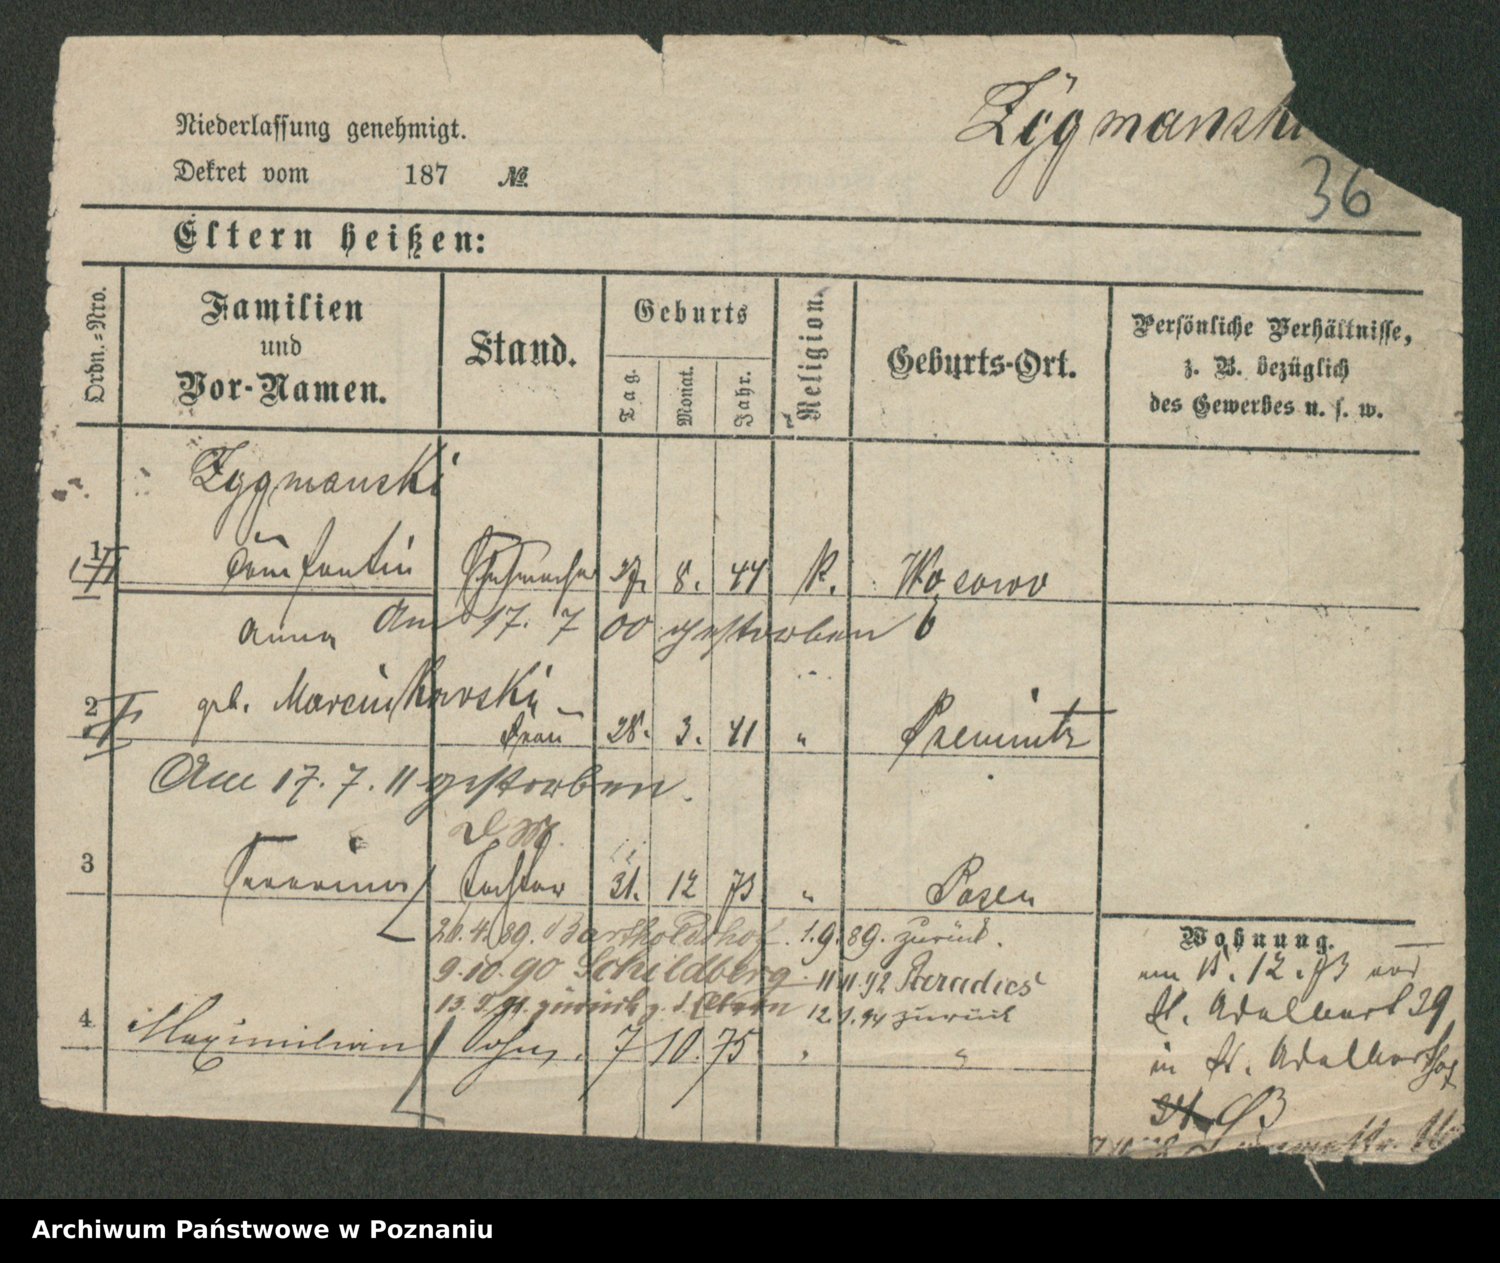 Zygmanski
36
Niederlassung genehmigt.
Dekret vom 187 №
Eltern heißen:
Ordn.-Nro.
Familien
und
Vor-Namen.
Stand.
Geburts
Tag.
Monat.
Jahr.
Religion.
Geburts-Ort.
Persönliche Verhältnisse,
z. B. bezüglich
des Gewerbes u. s. w.
Zygmanski
1 Constantin Schuhmacher 27. 8. 44 K. Wosowo
Am 17. 7 00 gestorben
Anna
2 geb. Marcinkowski Frau 28. 3. 41 " Premnitz
Am 17. 7. 11 gestorben.
3 Tochter 31. 12 73 " Posen
26.4.89. Bartholdshof. 1.9.89. zurück.
9.10.90 Schildberg 11.11.92 Paradies
zurück z. d. Eltern 12.1.94 zurück
4 Maximilian Sohn. 7 10. 75 " "
Wohnung.
12.73
St. Adalbert 29
in St. Adalbert